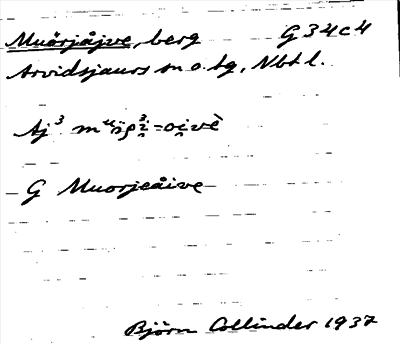 Muörjåjve, berg G34c4
Arvidsjaurs sn o. tg, Nbt l.
Aj³
G Muorjeåive
Björn Collinder 1937